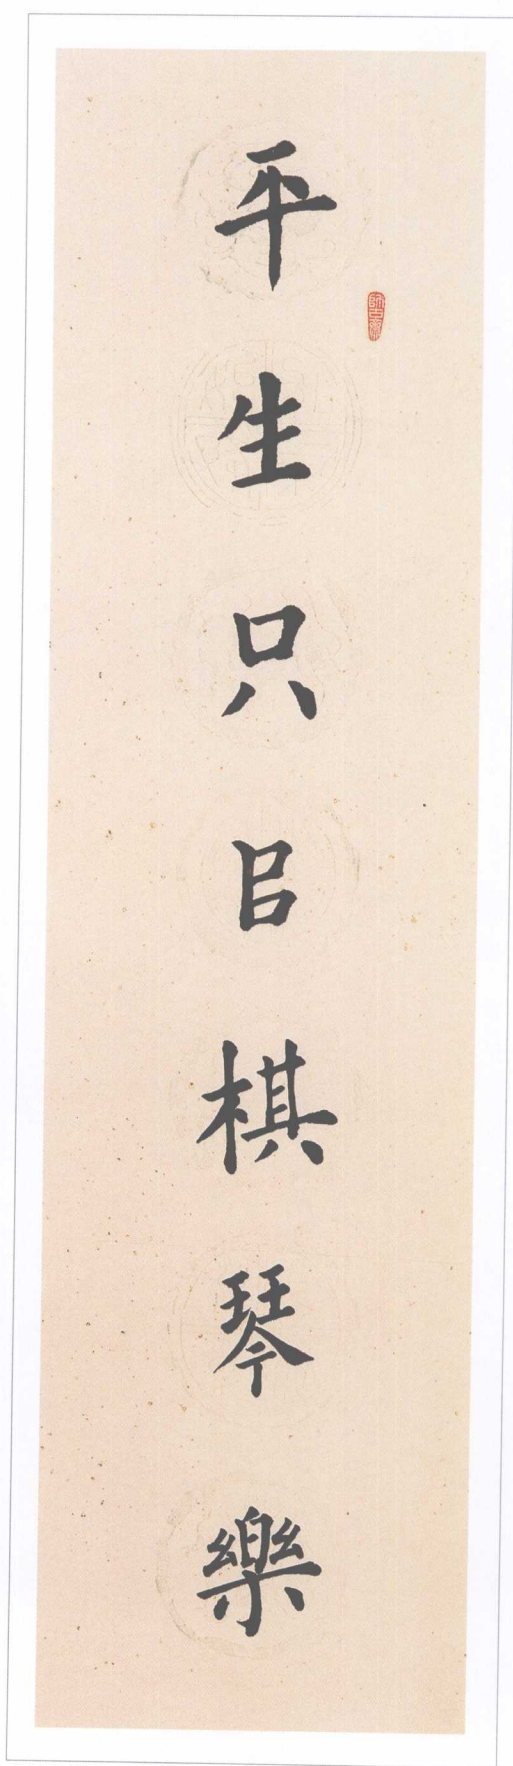 平生只㠯棋琴樂